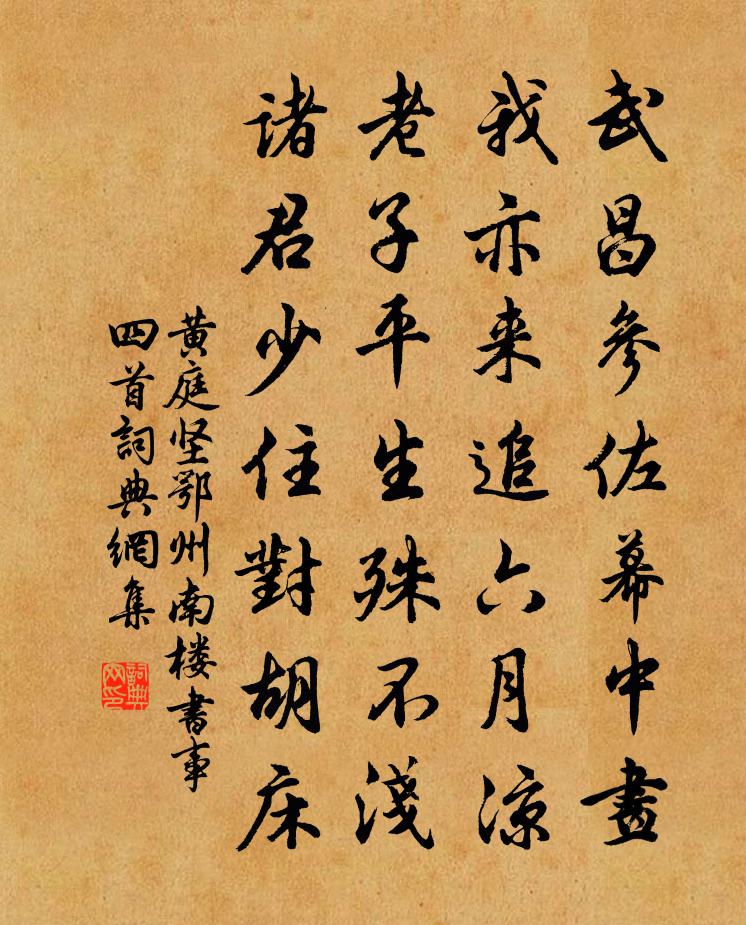 武昌參佐幕中畫
我亦来追六月涼
老子平生殊不淺
诸君少住對胡床
黄庭坚鄂州南楼書事
四首詞典網集
詞典网印